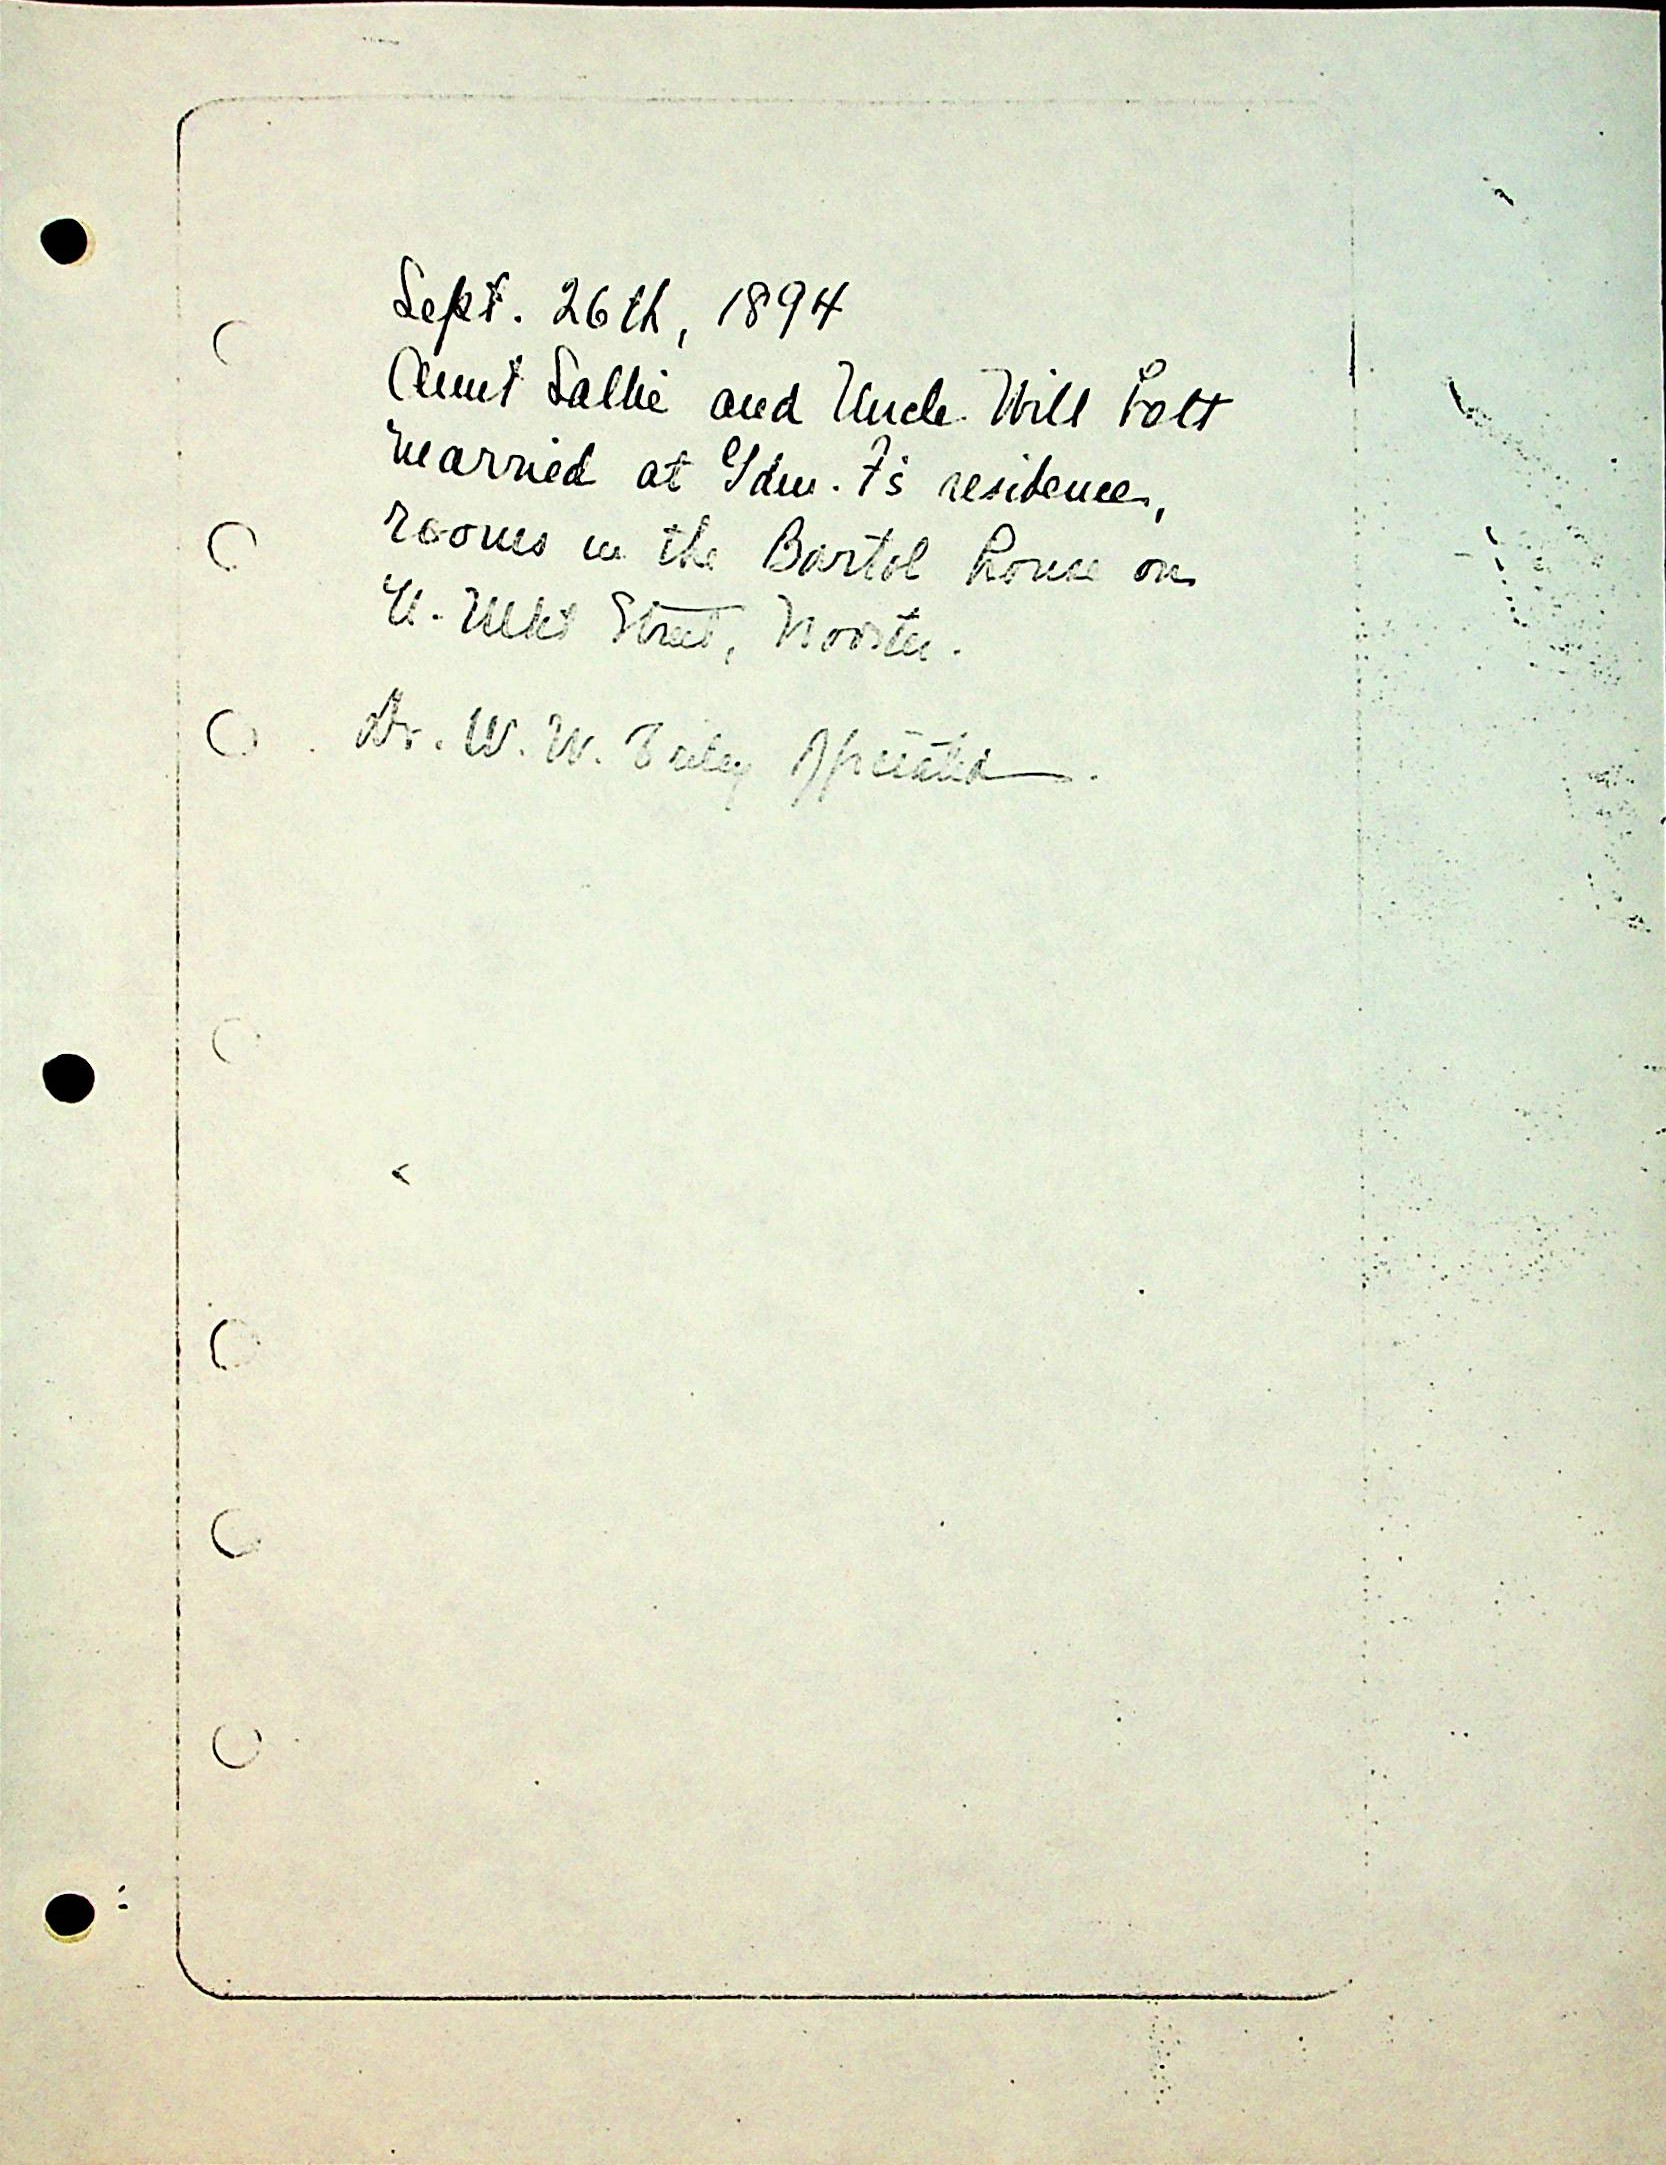 Sept. 26th, 1894
Aunt Sallie and Uncle Will Folt
married at Gdm. F's residence,
rooms in the Bartol house on
N. Mkt Street, Wooster.
Dr. W. W. officiated.